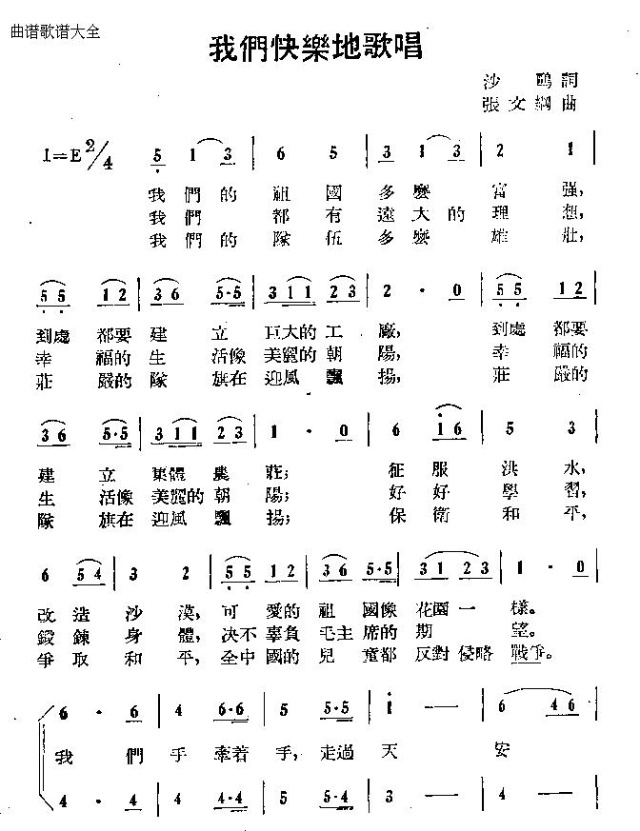 曲谱歌谱大全
我們快樂地歌唱
沙鷗詞
張文綱曲
1=E 2/4 5 1 3 | 6 5 | 3 1 3 | 2 1 |
我們的 祖國多麼富强,
我們 都有遠大的理想,
我們的隊伍多麼雄壯,
5 5 1 2 | 3 6 5·5 | 3 1 1 2 3 | 2 · 0 | 5 5 1 2 |
到處 都要 建 立 巨大的工 廠, 到處 都要
幸 福的生 活像 美麗的朝 陽, 幸 福的
莊 嚴的隊 旗在 迎風 飄 揚, 莊 嚴的
3 6 5·5 | 3 1 1 2 3 | 1 · 0 | 6 i 6 | 5 3 |
建 立 集體 農 莊; 征服 洪水,
生 活像 美麗的朝 陽; 好好 學習,
隊 旗在 迎風 飄 揚; 保衛 和平,
6 5 4 | 3 2 | 5 5 1 2 | 3 6 5·5 | 3 1 2 3 | 1 · 0
改造 沙 漠, 可 愛的 祖 國像 花園一 樣。
鍛鍊 身 體, 决不 辜負 毛主 席的 期 望。
爭取 和 平, 全中 國的 兒 童都 反對 侵略 戰爭。
6 · 6 | 4 6·6 | 5 5·5 | i — | — — | 6 4 6
我 們 手 牽着 手, 走過 天 安
4 · 4 | 4 4·4 | 5 5·4 | 3 — | — — | 4 4